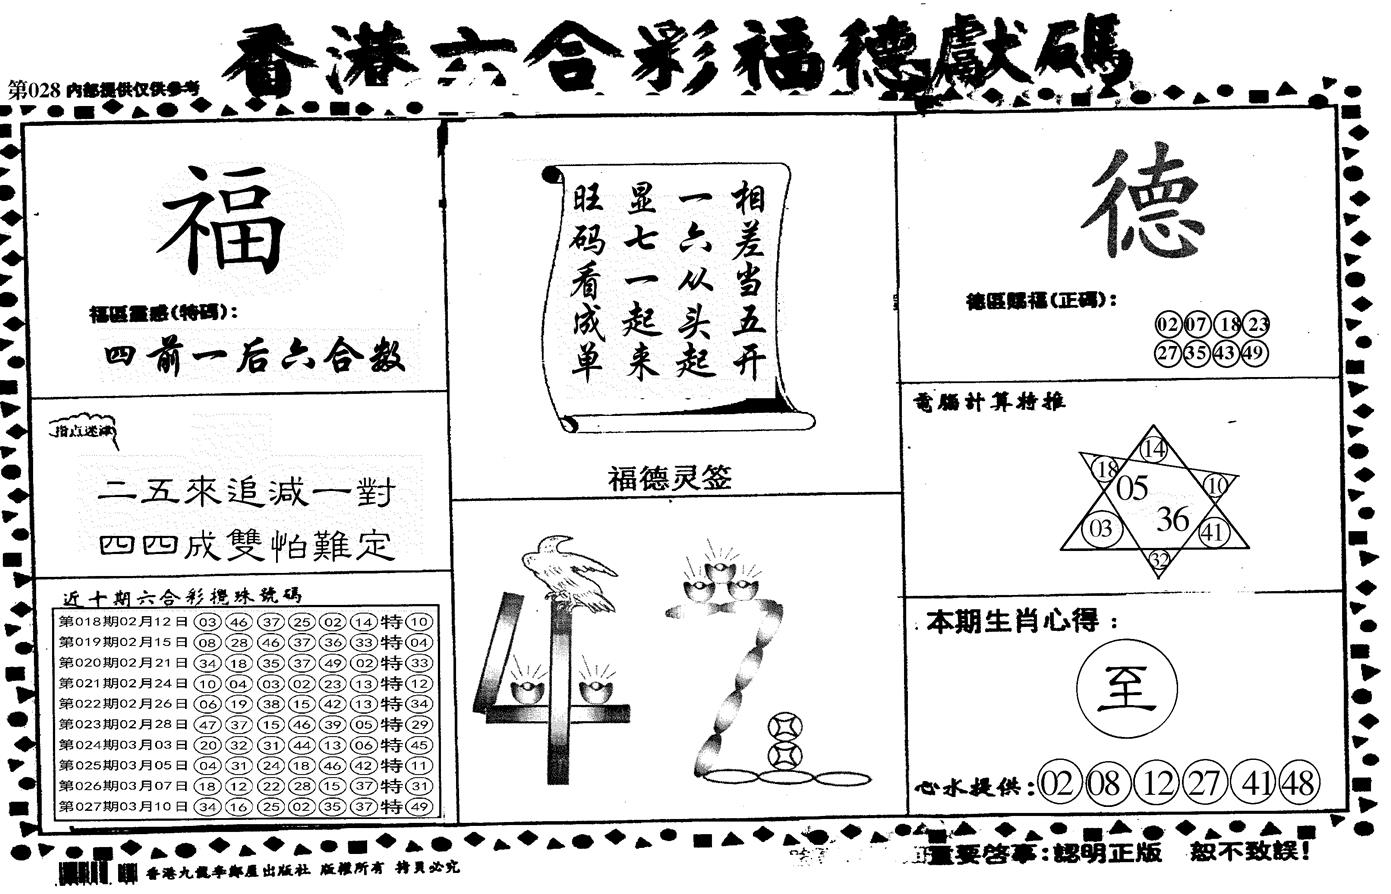 香港六合彩福德獻碼
第028 内部提供仅供参考
福
福區靈感(特碼):
四前一后六合数
指点迷津
二五來追減一對
四四成雙怕難定
近十期六合彩攪珠號碼
第018期02月12日 03 46 37 25 02 14 特 10
第019期02月15日 08 28 46 37 36 33 特 04
第020期02月21日 34 18 35 37 49 02 特 33
第021期02月24日 10 04 03 02 23 13 特 12
第022期02月26日 06 19 38 15 42 13 特 34
第023期02月28日 47 37 15 46 39 05 特 29
第024期03月03日 20 32 31 44 13 06 特 45
第025期03月05日 04 31 24 18 46 42 特 11
第026期03月07日 18 12 22 28 15 37 特 31
第027期03月10日 34 16 25 02 35 37 特 49
相差当五开
一六从头起
显七一起来
旺码看成单
福德灵签
德
德區賜福(正碼):
02 07 18 23
27 35 43 49
電腦計算特推
14
18
05
10
36
03
41
32
本期生肖心得:
至
心水提供: 02 08 12 27 41 48
重要啓事:認明正版 恕不致誤!
香港九龍李鄭屋出版社 版權所有 拷貝必究